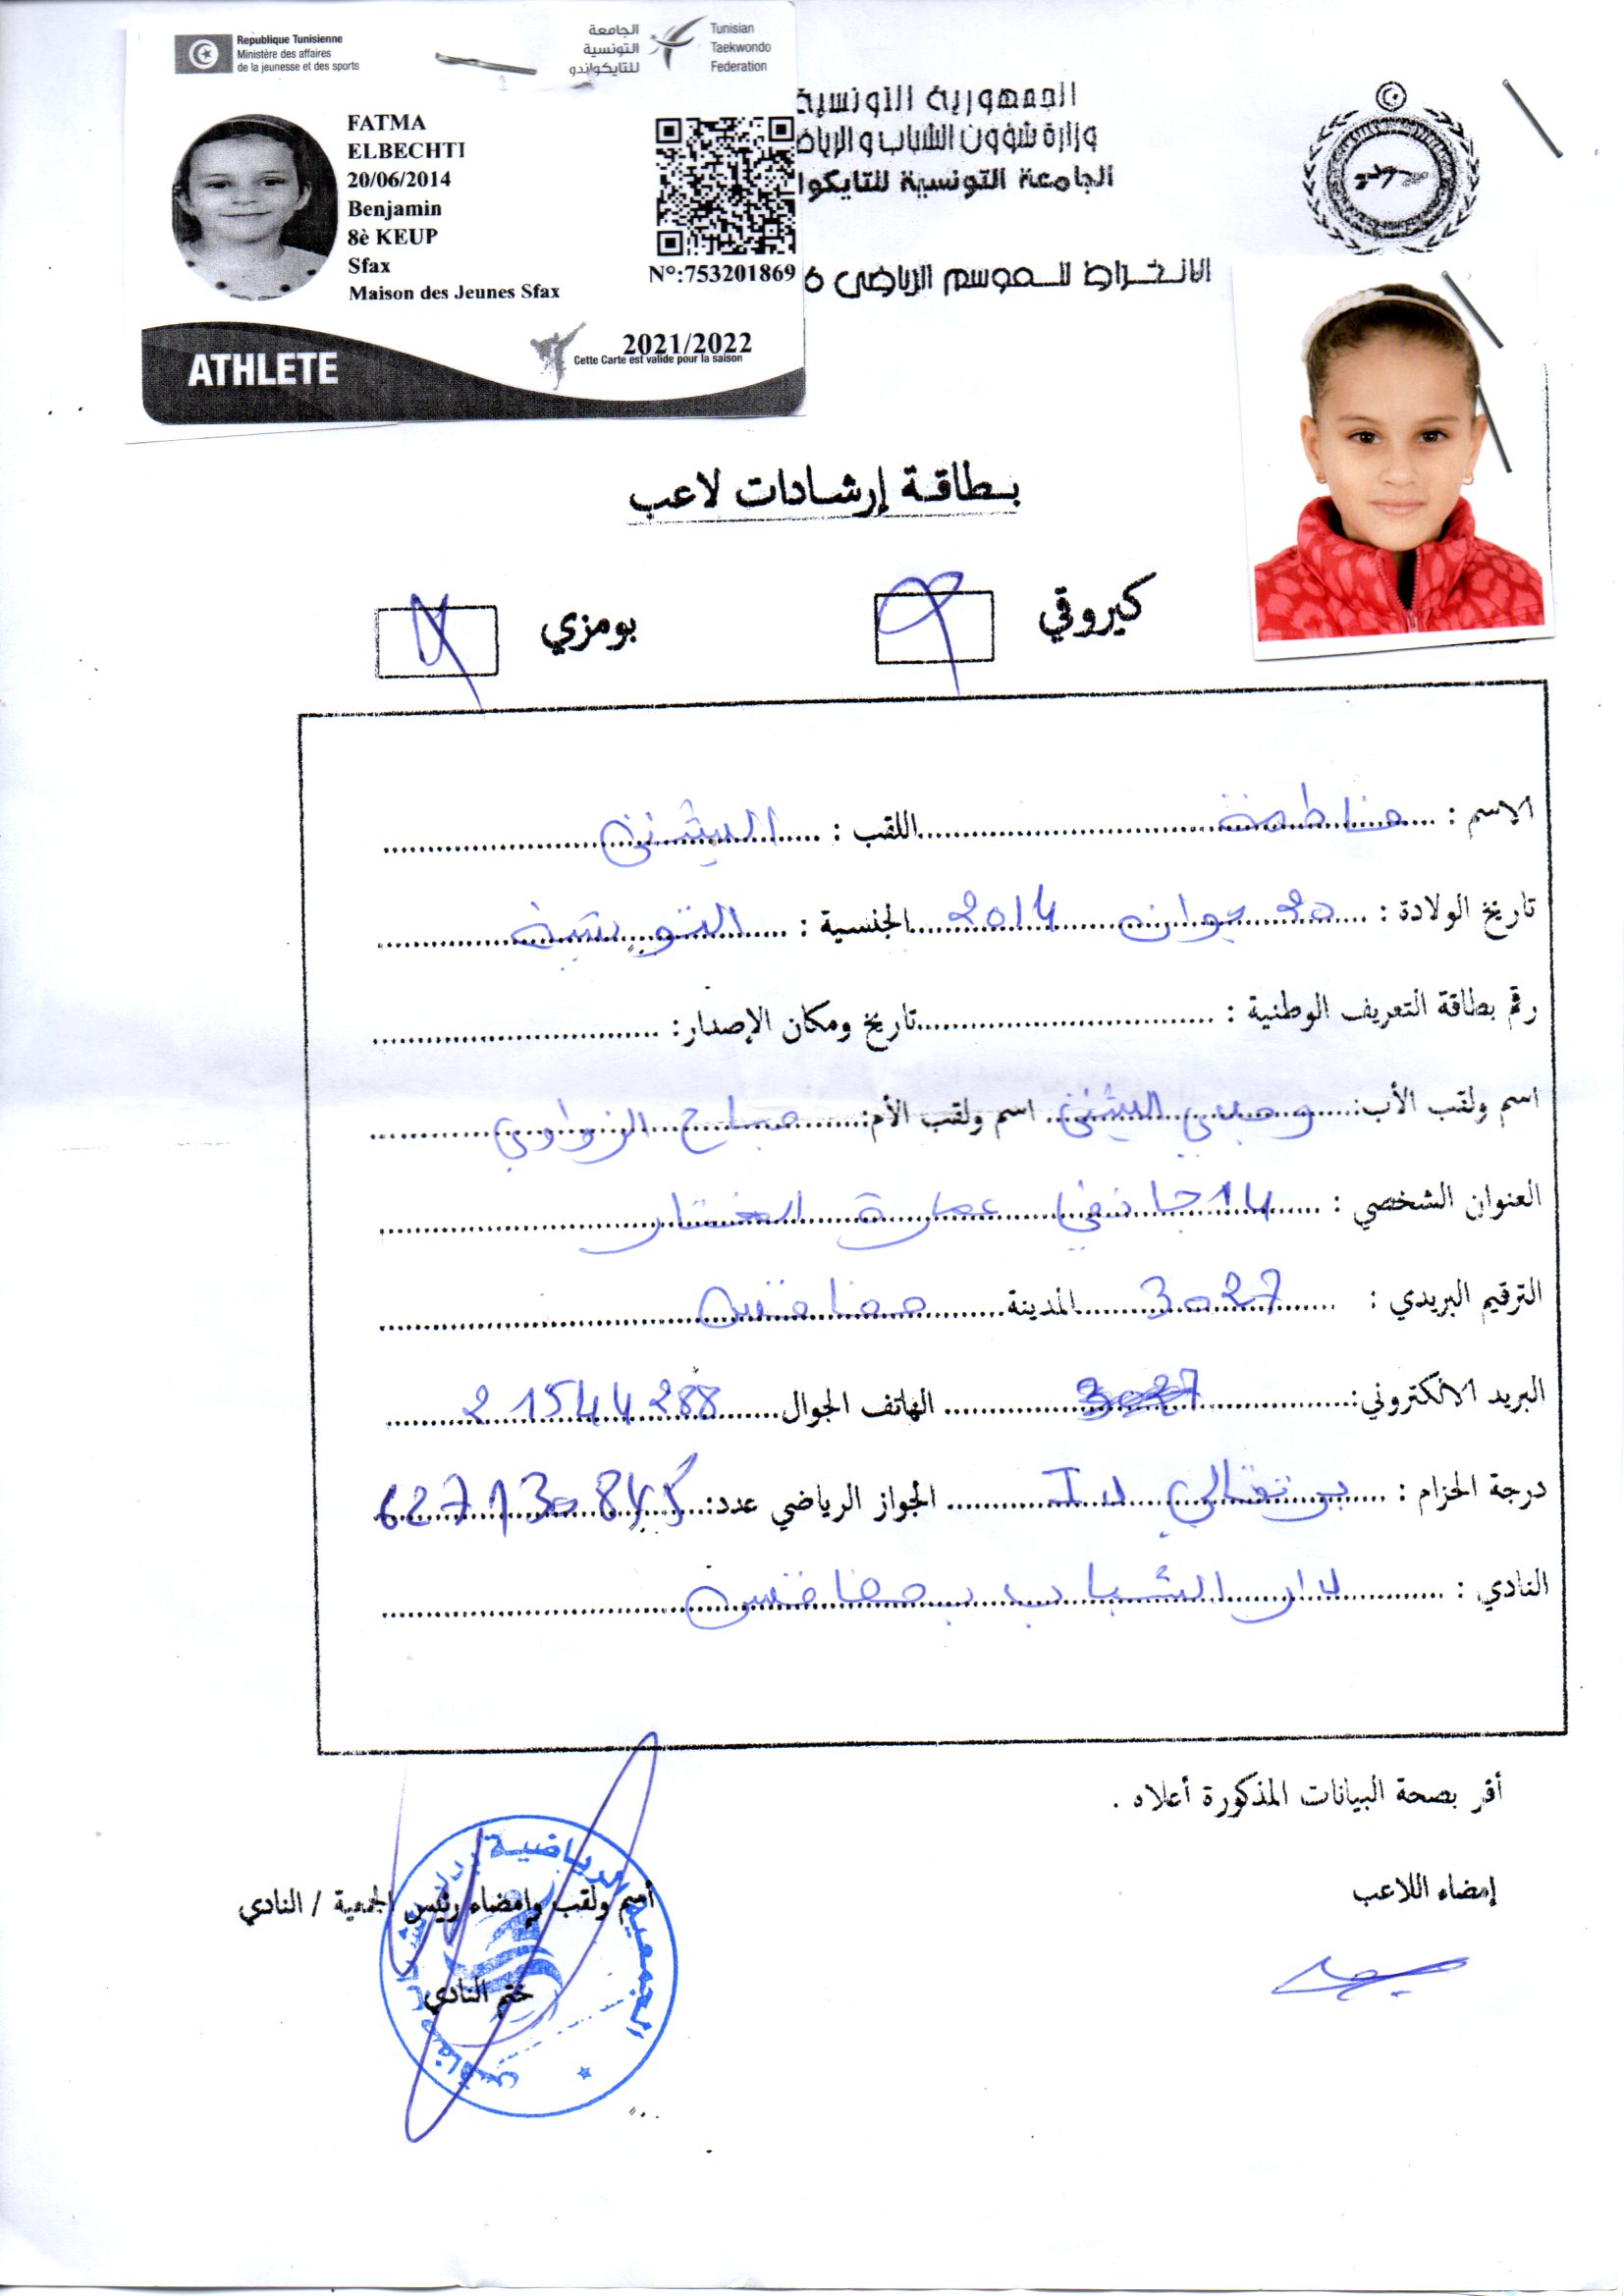 Republique Tunisienne
Ministère des affaires
de la jeunesse et des sports
الجامعة
التونسية
للتايكواندو
Tunisian
Taekwondo
Federation
FATMA
ELBECHTI
20/06/2014
Benjamin
8è KEUP
Sfax
Maison des Jeunes Sfax
N°:753201869
2021/2022
Cette Carte est valide pour la saison
ATHLETE
الجمهورية التونسية
وزارة شؤون الشباب و الرياض
الجامعة التونسية للتايكوا
الانخراط للموسم الرياضي 6
بطاقة إرشادات لاعب
كيروقي بومزي
الاسم : فاطمة اللقب : البشتي
تاريخ الولادة : 20 جوان 2014 الجنسية : التونسية
رقم بطاقة التعريف الوطنية : تاريخ ومكان الإصدار:
اسم ولقب الأب: وجدي البشتي اسم ولقب الأم: صباح الزواري
العنوان الشخصي : 14 جانفي عمارة المختار
الترقيم البريدي : 3027 المدينة صفاقس
البريد الالكتروني: الهاتف الجوال 21544288
درجة الحزام : برتقالي I د الجواز الرياضي عدد:
النادي : دار الشباب بصفاقس
أقر بصحة البيانات المذكورة أعلاه .
إمضاء اللاعب
أسم ولقب وإمضاء رئيس الجمعية / النادي
ختم النادي
الجمعية الرياضية بدار الشباب صفاقس